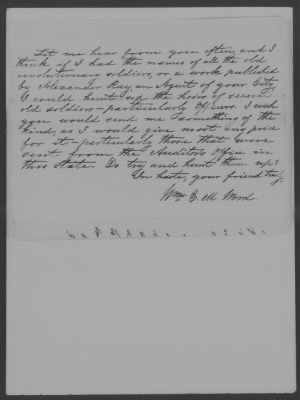 Let me hear from you often, and I
think if I had the names of all the old
revolutionary soldiers, or a work published
by Alexander Ray, an Agent of your City,
I could hunt up the heirs of several
old soldiers — particularly Officers. I wish
you would send me something of the
kind, as I would give most any price
for it — particularly those that were
sent from the Auditor's office in
this State. Do try and hunt them up!
In haste, your friend truly,
Wm. G. M. Wood.